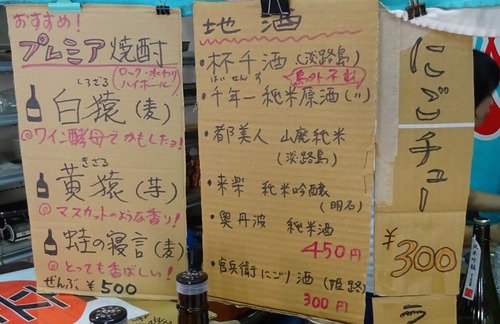 おすすめ!
プレミア焼酎
ロック・水わり
ハイボール
しろざる
白猿(麦)
◎ワイン酵母でかもしたょ!
きざる
黄猿(芋)
◎マスカットのような香り!
蛙の寝言(麦)
◎とっても香ばしい!
ぜんぶ ¥500
地酒
・杯千酒(淡路島)
はいせんす
島外不出
・千年一純米原酒(〃)
・都美人 山廃純米
(淡路島)
・来楽 純米吟醸
(明石)
・奥丹波 純米酒
450円
・官兵衛にごり酒(姫路)
300円
にごチュー
¥300
ラ